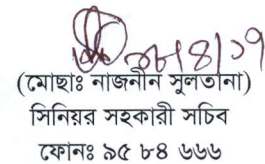 ০৮/৪/১৯
(মোছাঃ নাজনীন সুলতানা)
সিনিয়র সহকারী সচিব
ফোনঃ ৯৫ ৮৪ ৬৬৬